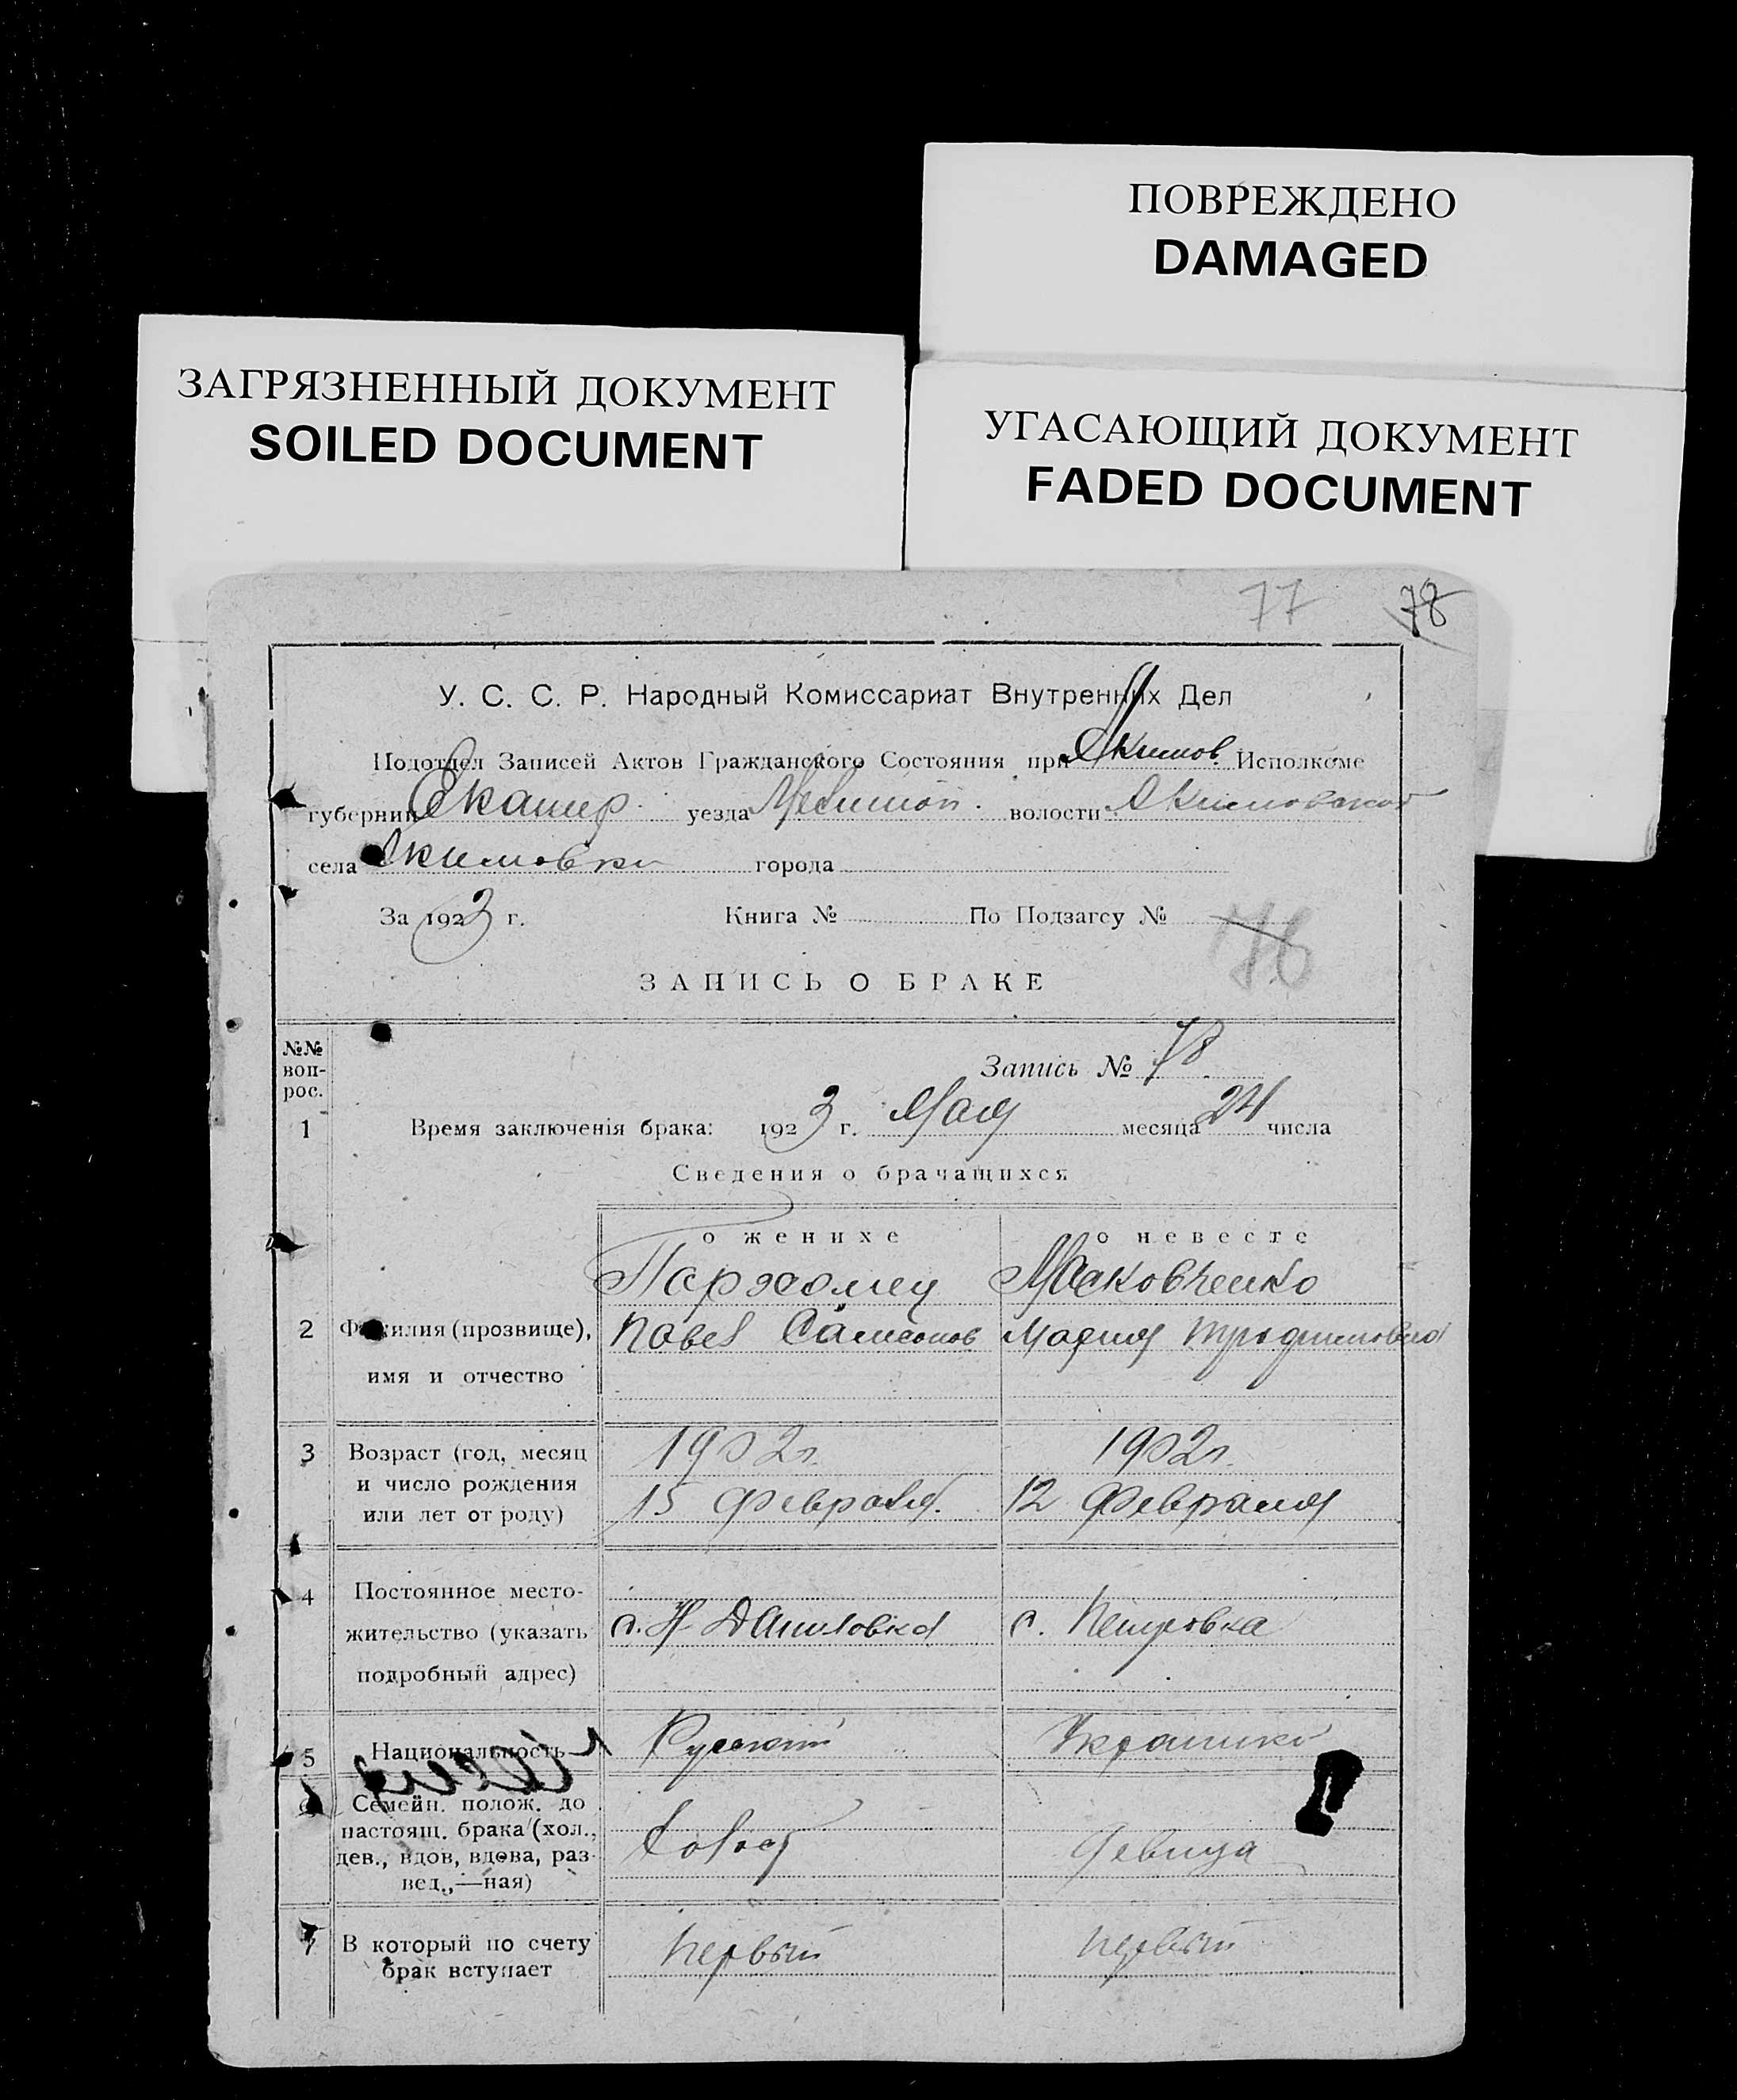 ПОВРЕЖДЕНО
DAMAGED
ЗАГРЯЗНЕННЫЙ ДОКУМЕНТ
SOILED DOCUMENT
УГАСАЮЩИЙ ДОКУМЕНТ
FADED DOCUMENT
77 78
У. С. С. Р. Народный Комиссариат Внутренних Дел
Подотдел Записей Актов Гражданского Состояния при Акимов. Исполкоме
губернии Екатер. уезда Мелитоп. волости Акимовской
села Акимовки города
За 1923 г. Книга № По Подзагсу № 76
ЗАПИСЬ О БРАКЕ
№№ воп- рос.
Запись № 78
1 Время заключенія брака: 1923 г. Мая месяца 24 числа
Сведения о брачащихся
о женихе о невесте
Пархомец Маковченко
2 Фамилия (прозвище), Павел Самсонов Мария Трофимовна
имя и отчество
3 Возраст (год, месяц 1902 г. 1902 г.
и число рождения
или лет от роду) 15 февраля. 12 февраля
4 Постоянное место-
жительство (указать с. Н Даниловка с. Петровка
подробный адрес)
5 Национальность Русский Украинка
6 Семейн. полож. до
настоящ. брака (хол., Холост Девица
дев., вдов, вдова, раз-
вед.,—ная)
7 В который по счету Первый Первый
брак вступает